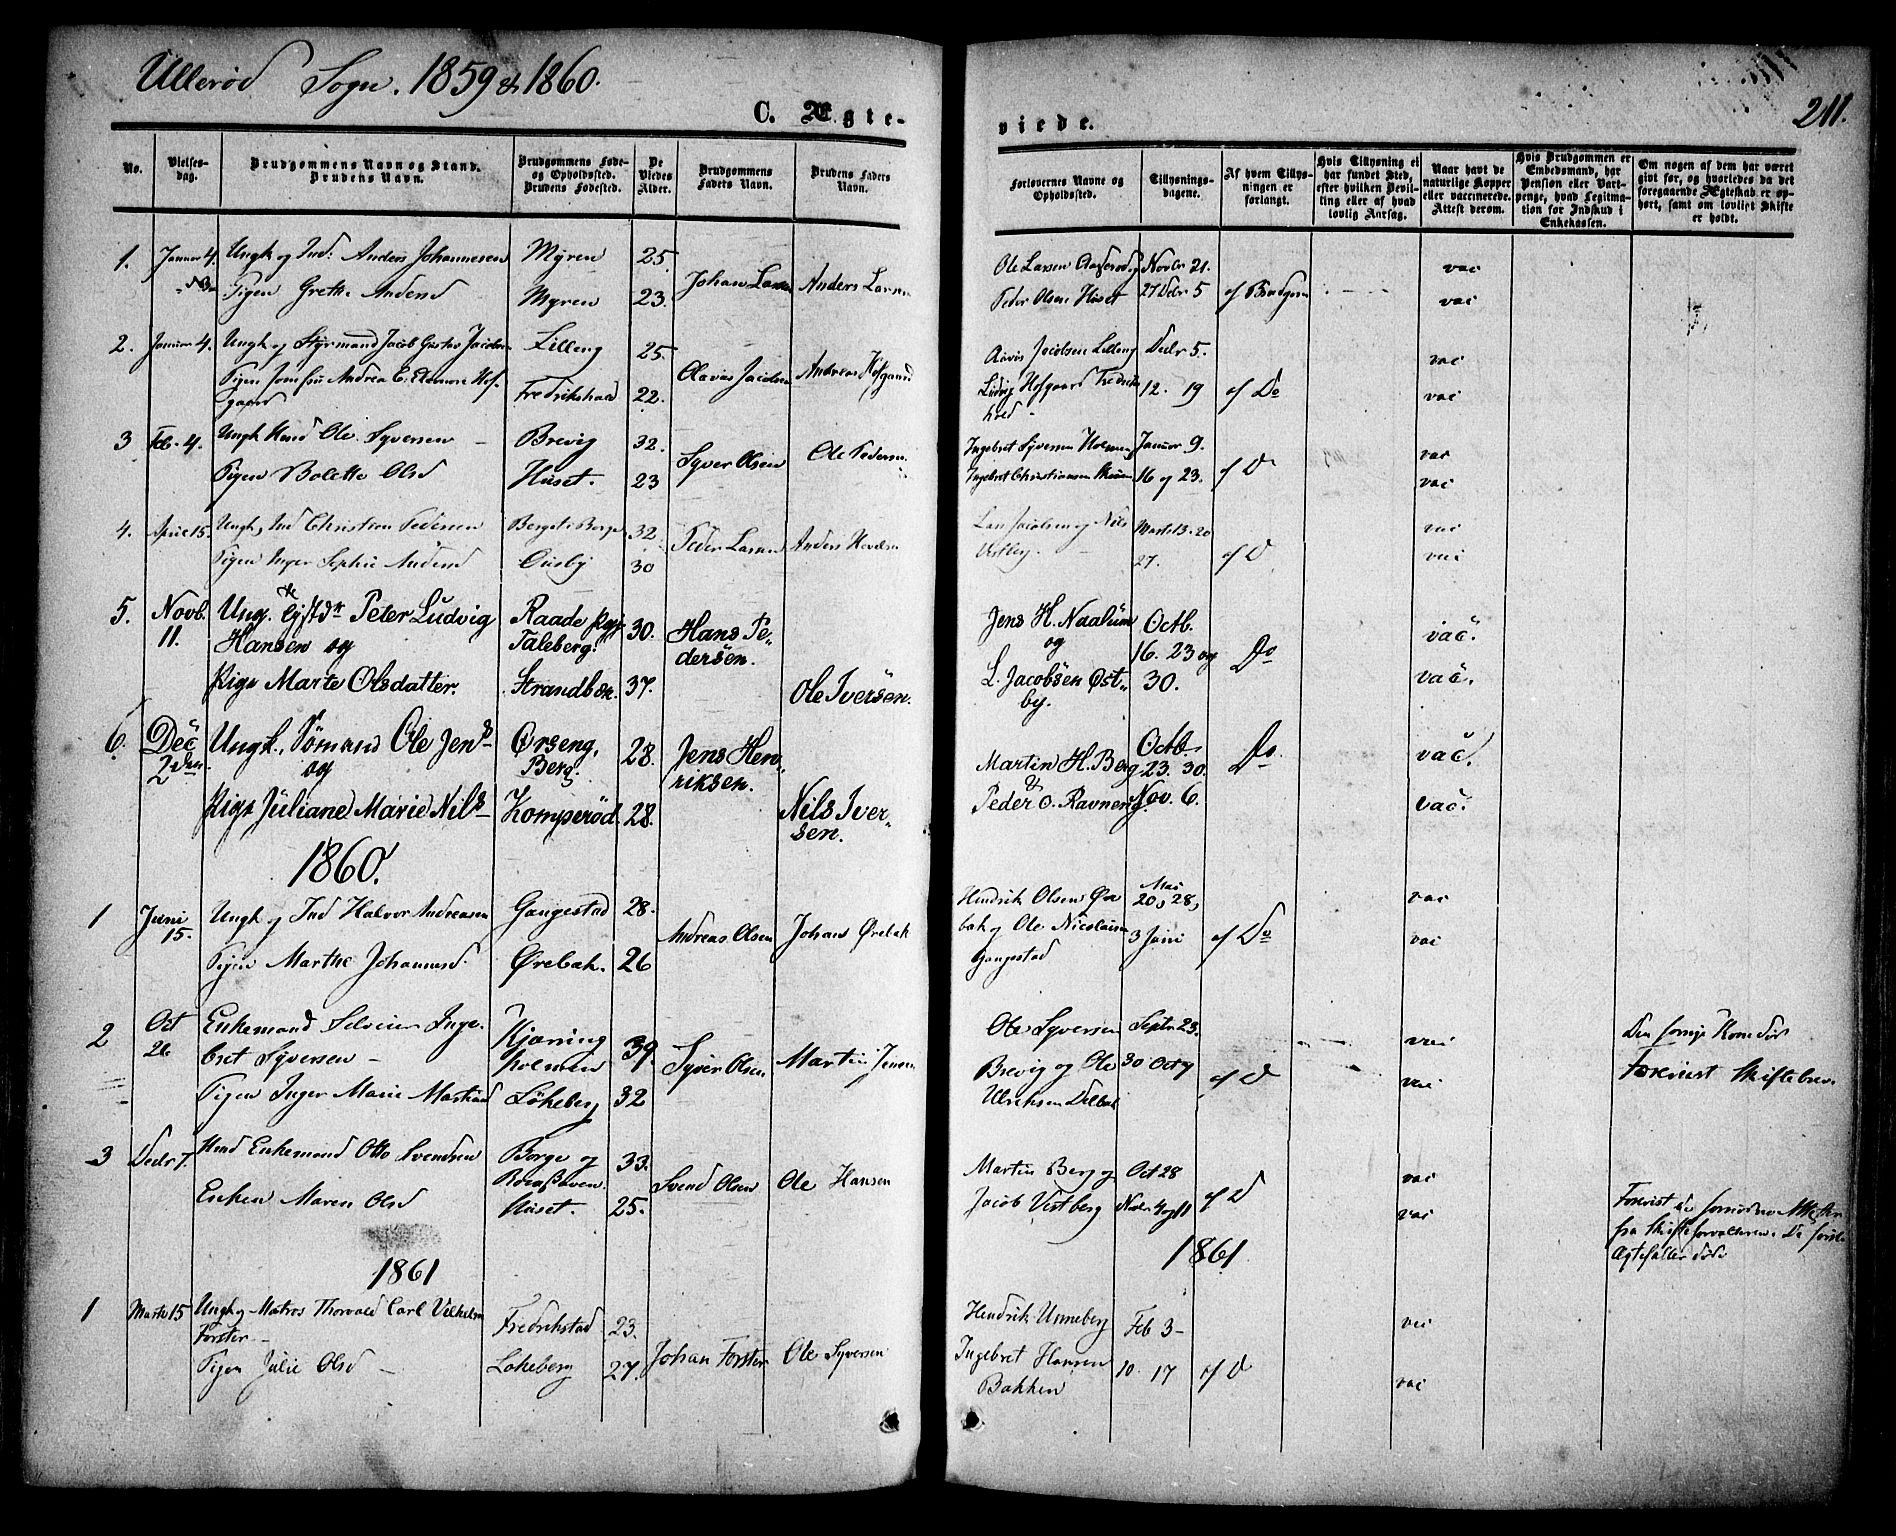 Ullerød Sogn. 1859 & 1860.
C. Ægte-
viede.
211.
No.
Vielses-
dag.
Brudgommens Navn og Stand.
Brudens Navn.
Brudgommens Føde-
og Opholdssted.
Brudens Fødested.
De
Viedes
Alder.
Brudgommens
Faders Navn.
Brudens Faders
Navn.
Forlovernes Navne og
Opholdssted.
Tillysnings-
dagene.
Af hvem Tillys-
ningen er
forlangt.
Hvis Tillysning ei
har fundet Sted,
efter hvilken Bevil-
ling eller af hvad
lovlig Aarsag.
Naar havt de
naturlige Kopper
eller vaccinerede.
Attest derom.
Hvis Brudgommen er
Embedsmand, har
Pension eller Vart-
penge, hvad Legitima-
tion for Indskud i
Enkekassen.
Om nogen af dem har været
gift før, og hvorledes da det
foregaaende Ægteskab er op-
hørt, samt om lovligt Skifte
er holdt.
1. Januar 4. Ungk og Ind: Anders Johannesen Myren 25. Johan Larsen Anders Larsen Ole Larsen Novbr 21. vac
Pigen Grethe Andersd Myren 23. Peder Olsen Huset 27 Decbr 5 af Brudgom vac
2. Januar 4. Ungk og Styrmand Jacob Gustav Jacobsen Lilleng 25. Olavus Jacobsen Andreas Hofgaard Jacobsen Lilleng Decbr 5. vac
Pigen Jomfru Andrea E. Elenore Hof-
gaard Fredrikshald 22. Ludvig Hofgaard Fredriks
hald 12. 19 af Do vac
3 Feb. 4. Ungk Ole Syversen Brevig 32. Syver Olsen Ole Pedersen Ingebret Syversen Holmen Januar 9. vac
Pigen Bolette Olsd Huset. 23 Ingebret Christiansen 16 og 23. af D vac
4. April 15. Ungk, Ind Christian Pedersen Berget i Borge 32. Peder Larsen Anders Lars Jacobsen og Nils Marts 13. 20 vac
Pigen Inger Sophie Andersd Ousby 30 Vestberg. 27. af D vac
5. Novb.
11. Ung. Peter Ludvig
Hansen og Raade
Taleberg. 30. Hans Pe-
dersen. Jens H. Naalum
og Octb.
16. 23 og Do vac.
Pige Marte Olsdatter. Strandbak. 37. Ole Iversen. L. Jacobsen Øst-
by. 30. vac.
6. Dec
2den Ungk., Sømand Ole Jens
og Ørseng,
Berg. 28. Jens Hen-
riksen. Martin H. Berg
& Octb.
23. 30. Do vac.
Pige Juliane Marie Nils Komperød. 28. Nils Iver-
sen. Peder O. Ravneng Nov. 6. vac.
1860.
1 Juni
15. Ungk og Ind Halvor Andreasen Gangestad 28. Andreas Olsen Johans Ørebak Hendrik Olsen Øre
bak og Ole Nicolaisen
Gangestad Mai
20, 28,
3 Juni af Do vac
Pigen Marthe Johannesd. Ørebak. 26 vac
2 Oct
26 Enkemand Inge-
bret Syversen Kjøning
holmen 39. Syver Olsen Martin Jensen Ole Syversen Septr. 23. vac Den forrige Kone død
Pigen Inger Marie Martinsd Løkeberg 32 Brevig og Ole
Ulriksen 30 Oct 7 af D vac Forevist Skiftebrev
3 Decbr 7. Enkemand Otto Svendsen Borge og 33. Svend Olsen Ole Hansen Martin Berg og Oct 28 vac
Enken Maren Olsd Huset. 25. Jacob Vestberg Novbr 4 og 11 af D vac Forevist de fornødne Attester
fra Skifteforvalteren. De første
Ægtefæller døde
1861
1861
1 Marts 15 Ungk og Matros Thorvald Carl Vilhelm
Forster Fredrikstad 23. Johan Forster Ole Syversen Hendrik Unneberg Feb 3 vac
Pigen Julie Olsd Løkeberg 27. Ingebret Hansen
Bakken 10. 17 af D vac